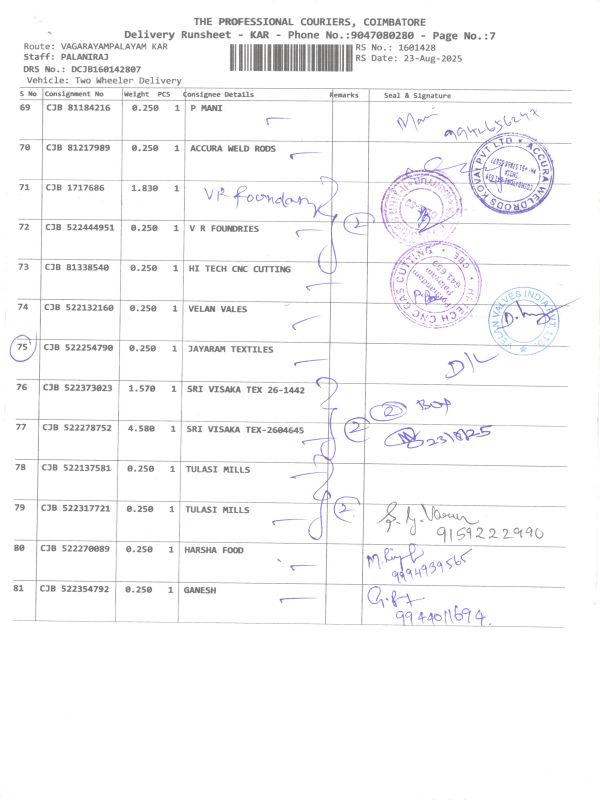 THE PROFESSIONAL COURIERS, COIMBATORE
Delivery Runsheet - KAR - Phone No.:9047080280 - Page No.:7
Route: VAGARAYAMPALAYAM KAR RS No.: 1601428
Staff: PALANIRAJ RS Date: 23-Aug-2025
DRS No.: DCJB160142807
Vehicle: Two Wheeler Delivery
S No Consignment No Weight PCS Consignee Details Remarks Seal & Signature
69 CJB 81184216 0.250 1 P MANI Mani
70 CJB 81217989 0.250 1 ACCURA WELD RODS ACCURA WELDRODS KOVAI PVT LTD
71 CJB 1717686 1.830 1 VR foundary
72 CJB 522444951 0.250 1 V R FOUNDRIES 2
73 CJB 81338540 0.250 1 HI TECH CNC CUTTING HI-TECH CNC GAS CUTTING
74 CJB 522132160 0.250 1 VELAN VALES VELAN VALVES INDIA PVT. LTD.
75 CJB 522254790 0.250 1 JAYARAM TEXTILES D/L
76 CJB 522373023 1.570 1 SRI VISAKA TEX 26-1442 2
77 CJB 522278752 4.580 1 SRI VISAKA TEX-2604645 2 23/8/25
78 CJB 522137581 0.250 1 TULASI MILLS
79 CJB 522317721 0.250 1 TULASI MILLS 2
9159222990
80 CJB 522270089 0.250 1 HARSHA FOOD
9994939565
81 CJB 522354792 0.250 1 GANESH
9944011694.